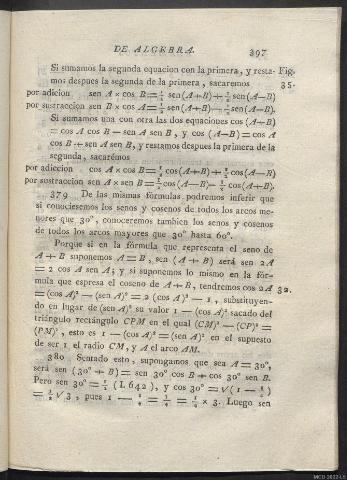 DE ALGEBRA. 397
Si sumamos la segunda equacion con la primera, y resta- Fig.
mos: despues la segunda de la primera, sacaremos 35.
por adicion sen A × cos B = ½ sen (A+B) + ½ sen (A—B)
por sustraccion sen B × cos A = ½ sen (A+B) — ½ sen (A—B).
Si sumamos una con otra las dos equaciones cos (A+B)
= cos A cos B — sen A sen B, y cos (A—B) = cos A
cos B + sen A sen B, y restamos despues la primera de la
segunda, sacarémos
por adiccion cos A × cos B = ½ cos (A—B) + ½ cos (A+B)
por sustraccion sen A × sen B = ½ cos (A—B) — ½ cos (A+B).
379 De las mismas fórmulas podremos inferir que
si conociesemos los senos y cosenos de todos los arcos me-
nores que 30°, conoceremos tambien los senos y cosenos
de todos los arcos mayores que 30° hasta 60°.
Porque si en la fórmula que representa el seno de
A + B suponemos A = B, sen (A + B) será sen 2A
= 2 cos A sen A; y si suponemos lo mismo en la fór-
mula que espresa el coseno de A + B, tendremos cos 2A 32.
= (cos A)² — (sen A)² = 2 (cos A)² — 1, substituyen-
do en lugar de (sen A)² su valor 1 — (cos A)² sacado del
triángulo rectángulo CPM en el qual (CM)² — (CP)² =
(PM)², esto es 1 — (cos A)² = (sen A)² en el supuesto
de ser 1 el radio CM, y A el arco AM.
380 Sentado esto, supongamos que sea A = 30°,
será sen (30° + B) = sen 30° cos B + cos 30° sen B.
Pero sen 30° = ½ (I. 642), y cos 30° = √(1 — ¼)
= ½ √3, pues 1 — ¼ = ¾ = ¼ × 3. Luego sen
MCD 2022-L5